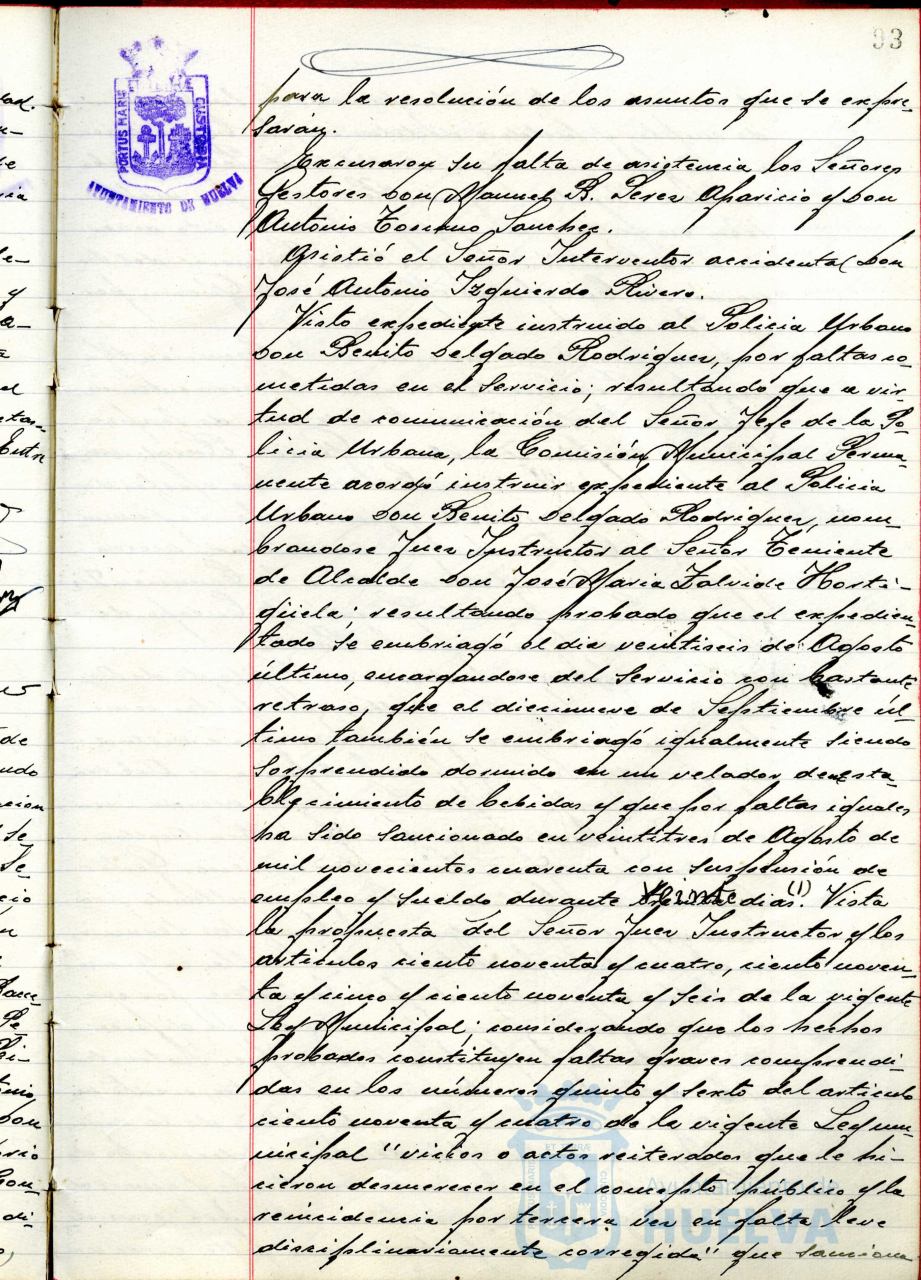 93
PORTUS MARIS ET TERRAE CUSTODIA
AYUNTAMIENTO DE HUELVA
para la resolución de los asuntos que se expre-
sarán.
Excusaron su falta de asistencia los Señores
Gestores Don Manuel R. Perez Aparicio y Don
Antonio Toscano Sanchez.
Asistió el Señor Interventor accidental Don
José Antonio Izquierdo Rivero.
Visto expediente instruido al Policia Urbano
Don Benito Delgado Rodriguez, por faltas co
metidas en el Servicio; resultando que a vir-
tud de comunicación del Señor Jefe de la Po-
licia Urbana, la Comisión Municipal Perma-
nente acordó instruir expediente al Policia
Urbano Don Benito Delgado Rodriguez, nom
brandose Juez Instructor al Señor Teniente
de Alcalde Don José Maria Zalvide Horti-
güela; resultando probado que el expedien-
tado se embriagó el dia veintiseis de Agosto
último, encargandose del Servicio con bastante
retraso, que el diecinueve de Septiembre úl-
timo también se embriagó igualmente siendo
sorprendido dormido en un velador de esta
blecimiento de bebidas y que por faltas iguales
ha sido sancionado en veintitres de Agosto de
mil novecientos cuarenta con suspensión de
empleo y sueldo durante veinte dias (1). Vista
la propuesta del Señor Juez Instructor y los
articulos ciento noventa y cuatro, ciento noven-
ta y cinco y ciento noventa y seis de la vigente
Ley Municipal; considerando que los hechos
probados constituyen faltas graves comprendi-
das en los números quinto y sexto del articulo
ciento noventa y cuatro de la vigente Ley mu-
nicipal "vicios o actos reiterados que le hi-
cieron desmerecer en el concepto público y la
reincidencia por tercera vez en falta leve
disciplinariamente corregida" que sanciona
Ayuntamiento de
HUELVA